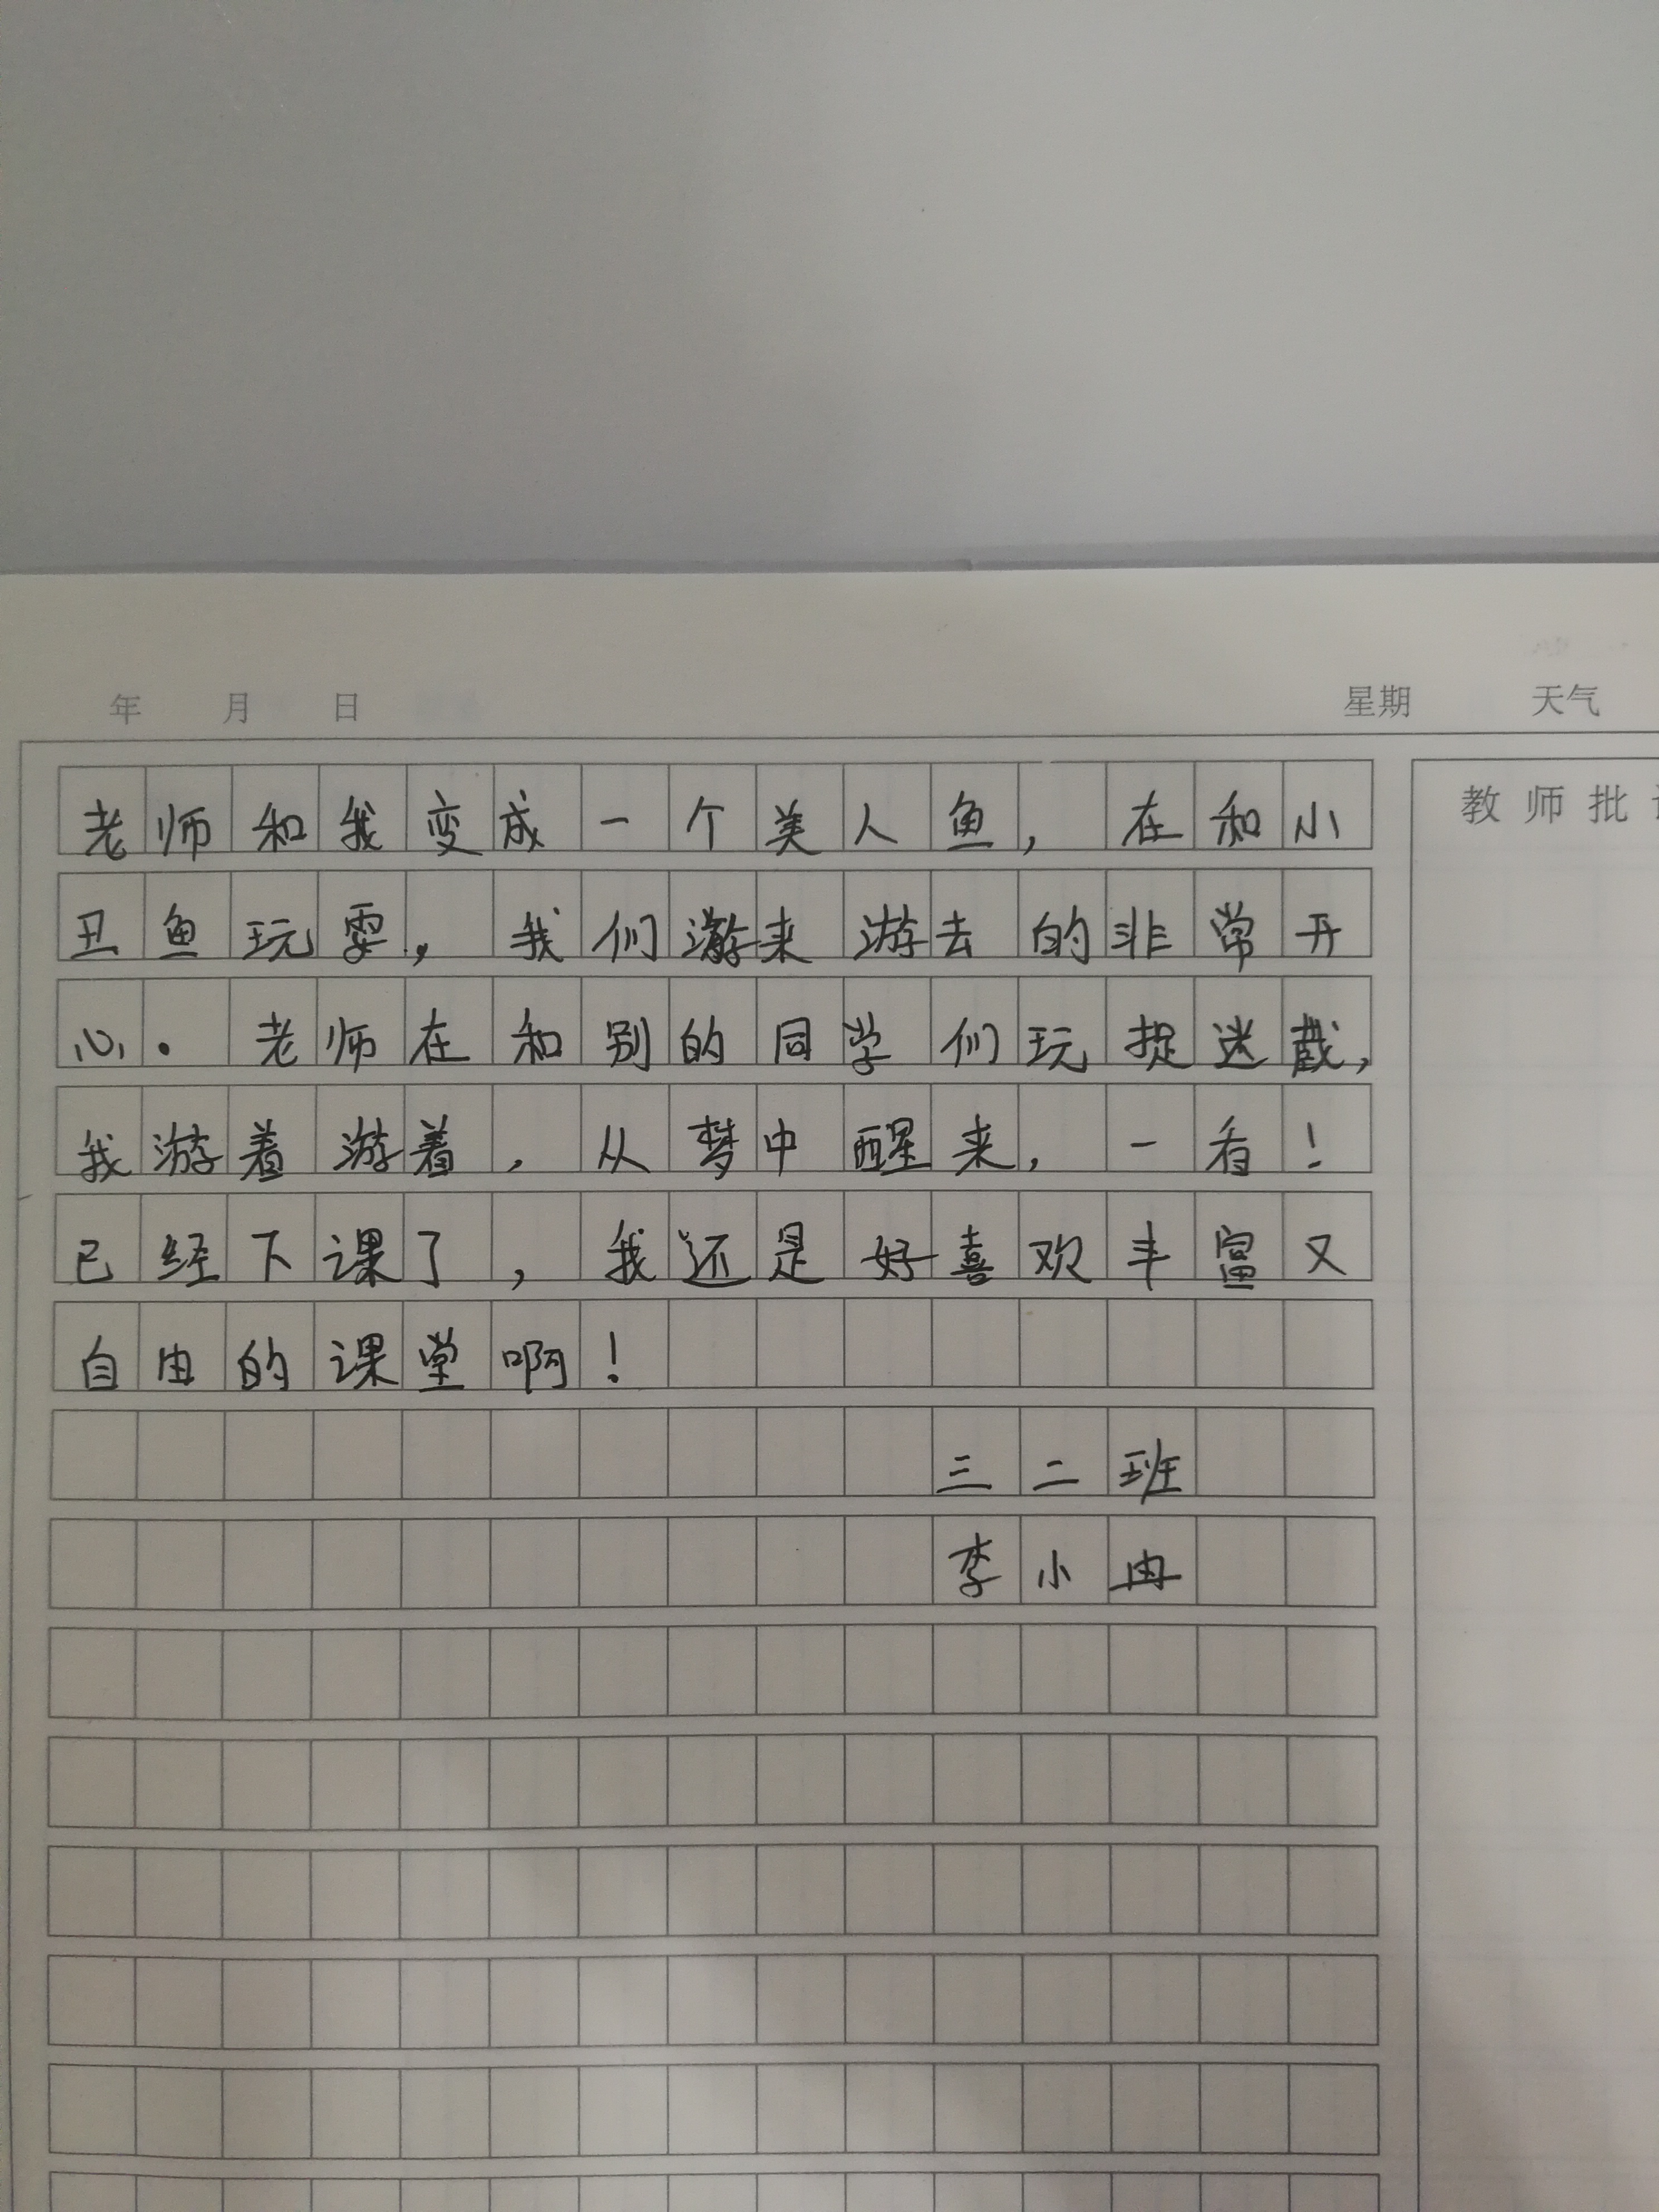 年 月 日 星期 天气
教师批
老师和我变成一个美人鱼，在和小
丑鱼玩耍，我们游来游去的非常开
心。老师在和别的同学们玩捉迷藏，
我游着游着，从梦中醒来，一看！
已经下课了，我还是好喜欢丰富又
自由的课堂啊！
三二班
李小冉